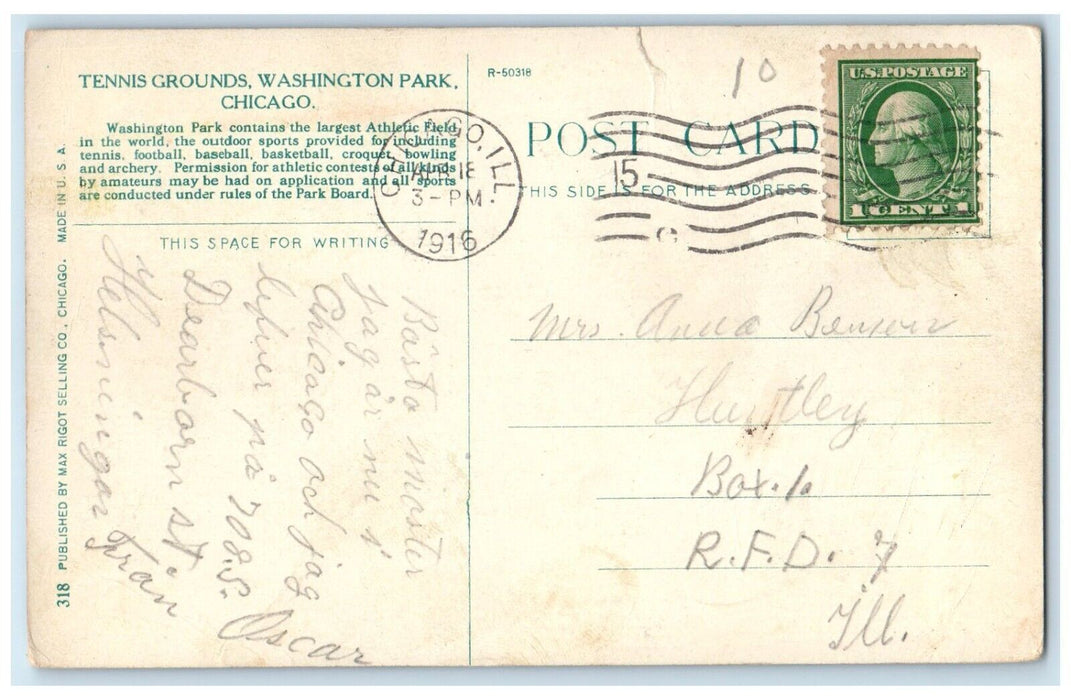 TENNIS GROUNDS, WASHINGTON PARK,
CHICAGO.
Washington Park contains the largest Athletic Field
in the world, the outdoor sports provided for including
tennis, football, baseball, basketball, croquet, bowling
and archery. Permission for athletic contests of all kinds
by amateurs may be had on application and all sports
are conducted under rules of the Park Board.
THIS SPACE FOR WRITING
Bästa moster
Jag är nu i
Chicago och jag
lefver på 708 S.
Dearborn st.
Helsningar från
Oscar
318 PUBLISHED BY MAX RIGOT SELLING CO., CHICAGO. MADE IN U.S.A.
R-50318
10
POST CARD
THIS SIDE IS FOR THE ADDRESS
CHICAGO, ILL.
APR 18
3-PM
1916
15
C
U.S. POSTAGE
1 CENT 1
Mrs. Anna Benson
Huntley
Box. 1.
R.F.D. 7
Ill.